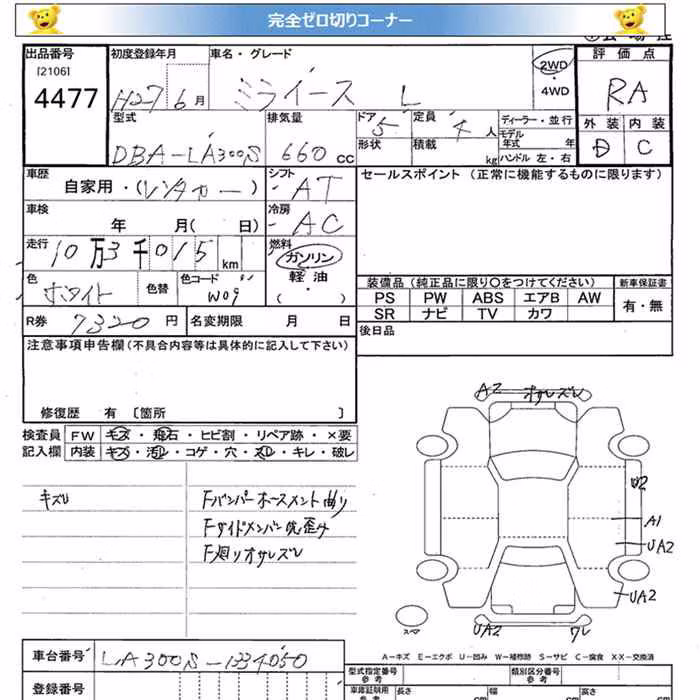 完全ゼロ切りコーナー
出品番号
[2106]
4477
初度登録年月
H27 6月
車名・グレード
ミライース L
2WD
・
4WD
評価点
RA
型式
DBA-LA300S
排気量
660 CC
ドア
5
形状
定員
4 人
積載
kg
ディーラー・並行
モデル
年式 年
ハンドル 左・右
外装 内装
D C
車歴
自家用・(レンタカー)
シフト
AT
セールスポイント (正常に機能するものに限ります)
車検
年 月( 日)
冷房
AC
走行
10万3千015 km
燃料
ガソリン
・
軽油
( )
色
ホワイト
色替
色コード
W09
装備品 (純正品に限り〇をつけてください)
新車保証書
PS PW ABS エアB AW
有・無
SR ナビ TV カワ
R券 7320 円
名変期限 月 日
後日品
注意事項申告欄 (不具合内容等は具体的に記入して下さい)
修復歴 有 〔箇所 〕
検査員
記入欄
FW キズ・飛石・ヒビ割・リペア跡・×要
内装 キズ・汚レ・コゲ・穴・スレ・キレ・破レ
キズレ
Fバンパーホースメント曲り
Fサイドメンバー先歪み
F廻りオサレズレ
A2 オサレズレ
U2
A1
UA2
UA2
スペア
UA2 ワレ
A－キズ E－エクボ U－凹み W－補修跡 S－サビ C－腐食 X・XX－交換済
車台番号 LA300S-1334050
登録番号
型式指定番号
参考
類別区分番号
参考
車庫証明用
参考
長さ cm
幅 cm
高さ cm